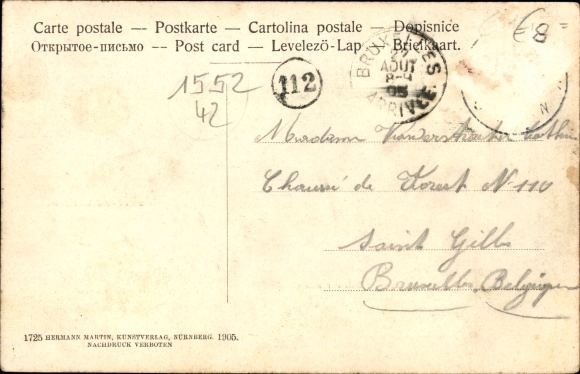 Carte postale — Postkarte — Cartolina postale — Dopisnice
Открытое-письмо — Post card — Levelezö-Lap — Briefkaart.
€ 8
1552
42
112
BRUXELLES
22
AOUT
8-9
05
ARRIVÉE
N
Madame Vanderstraeten
Chaussé de Forest N 110
Saint Gilles
Bruxelles Belgique
1725 HERMANN MARTIN, KUNSTVERLAG, NÜRNBERG. 1905.
NACHDRUCK VERBOTEN